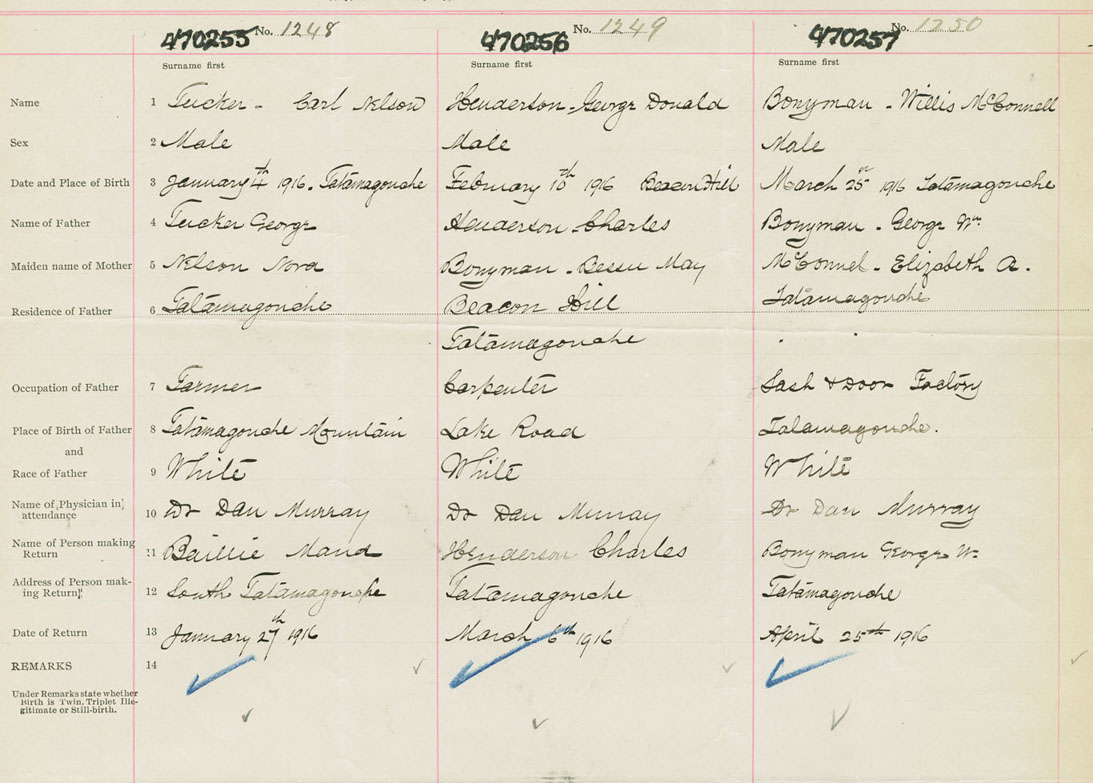 470255 No. 1248 470256 No. 1249 470257 No. 1250
Surname first Surname first Surname first
Name 1 Tucker - Carl Nelson Henderson - George Donald Bonyman - Willis McConnell
Sex 2 Male Male Male
Date and Place of Birth 3 January 4th 1916. Tatamagouche February 10th 1916 Beacon Hill March 25th 1916 Tatamagouche
Name of Father 4 Tucker George Henderson - Charles Bonyman - George Wm
Maiden name of Mother 5 Nelson Nora Bonyman - Bessie May McConnel - Elizabeth A.
Residence of Father 6 Tatamagouche Beacon Hill Tatamagouche
Tatamagouche
Occupation of Father 7 Farmer Carpenter Sash & Door Factory
Place of Birth of Father 8 Tatamagouche Mountain Lake Road Tatamagouche.
and
Race of Father 9 White White White
Name of Physician in
attendance 10 Dr Dan Murray Dr Dan Murray Dr Dan Murray
Name of Person making
Return 11 Baillie Maud Henderson Charles Bonyman George W.
Address of Person mak-
ing Return 12 South Tatamagouche Tatamagouche Tatamagouche
Date of Return 13 January 27th 1916 March 6th 1916 April 25th 1916
REMARKS 14
Under Remarks state whether
Birth is Twin. Triplet Ille-
gitimate or Still-birth.